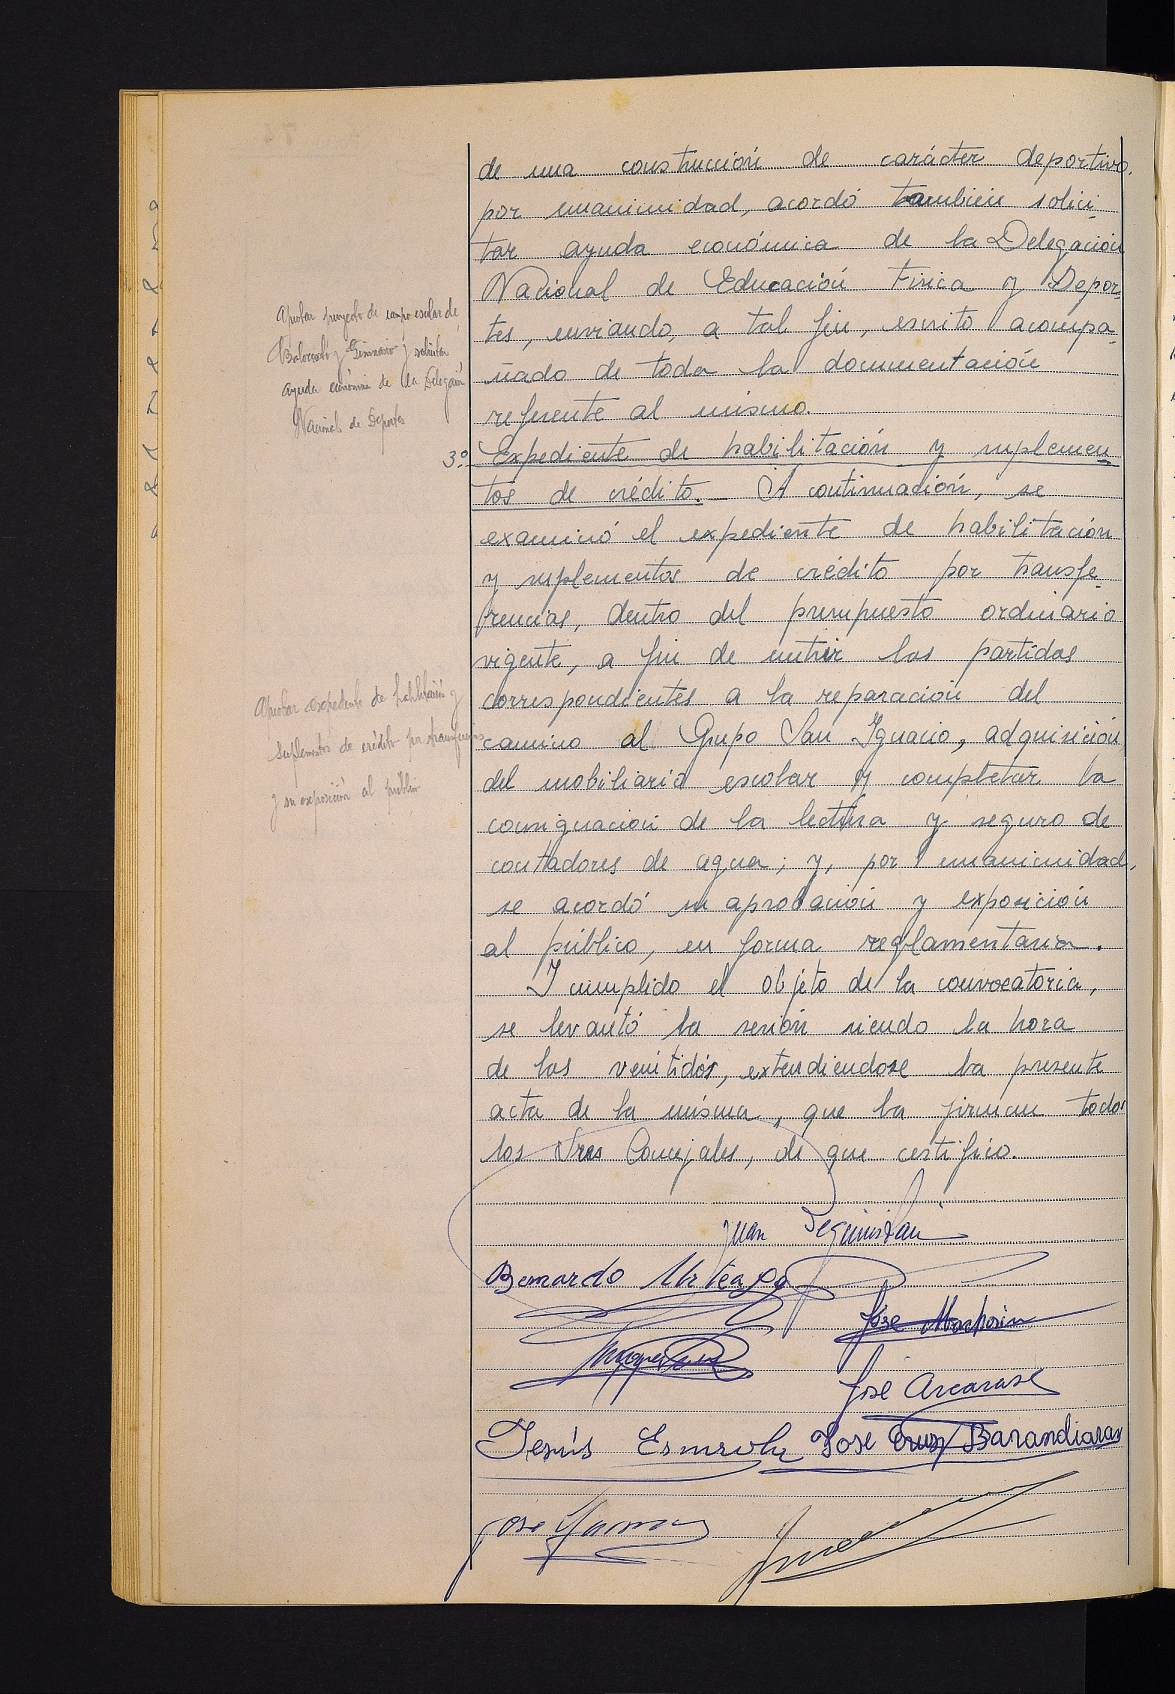 de una construcción de carácter deportivo,
por unanimidad, acordó también solici-
tar ayuda económica de la Delegación
Nacional de Educación Física y Depor-
tes, enviando, a tal fin, escrito acompa-
ñado de toda la documentación
referente al mismo.
Aprobar proyecto de campo escolar de
Baloncesto y Gimnasio y solicitar
ayuda económica de la Delegación
Nacional de Deportes
3º. Expediente de habilitación y suplemen-
tos de crédito. — A continuación, se
examinó el expediente de habilitación
y suplementos de crédito por transfe-
rencias, dentro del presupuesto ordinario
vigente, a fin de nutrir las partidas
correspondientes a la reparación del
camino al Grupo San Ignacio, adquisición
del mobiliario escolar y completar la
consignación de la lectura y seguro de
contadores de agua; y, por unanimidad,
se acordó su aprobación y exposición
al público, en forma reglamentaria.
Aprobar expediente de habilitación y
suplementos de crédito por transferencias
y su exposición al público
Y cumplido el objeto de la convocatoria,
se levantó la sesión siendo la hora
de las veintidós, extendiéndose la presente
acta de la misma, que la firman todos
los Sres Concejales, de que certifico.
Juan
Bernardo Urteaga
José
José
Jesús
José Cruz Barandiaran
José